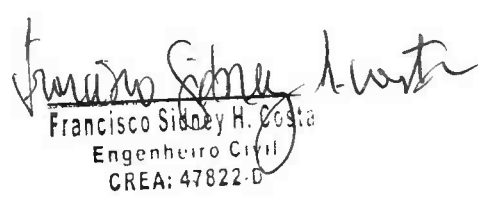 Francisco Sidney H Costa
Francisco Sidney H. Costa
Engenheiro Civil
CREA: 47822-D